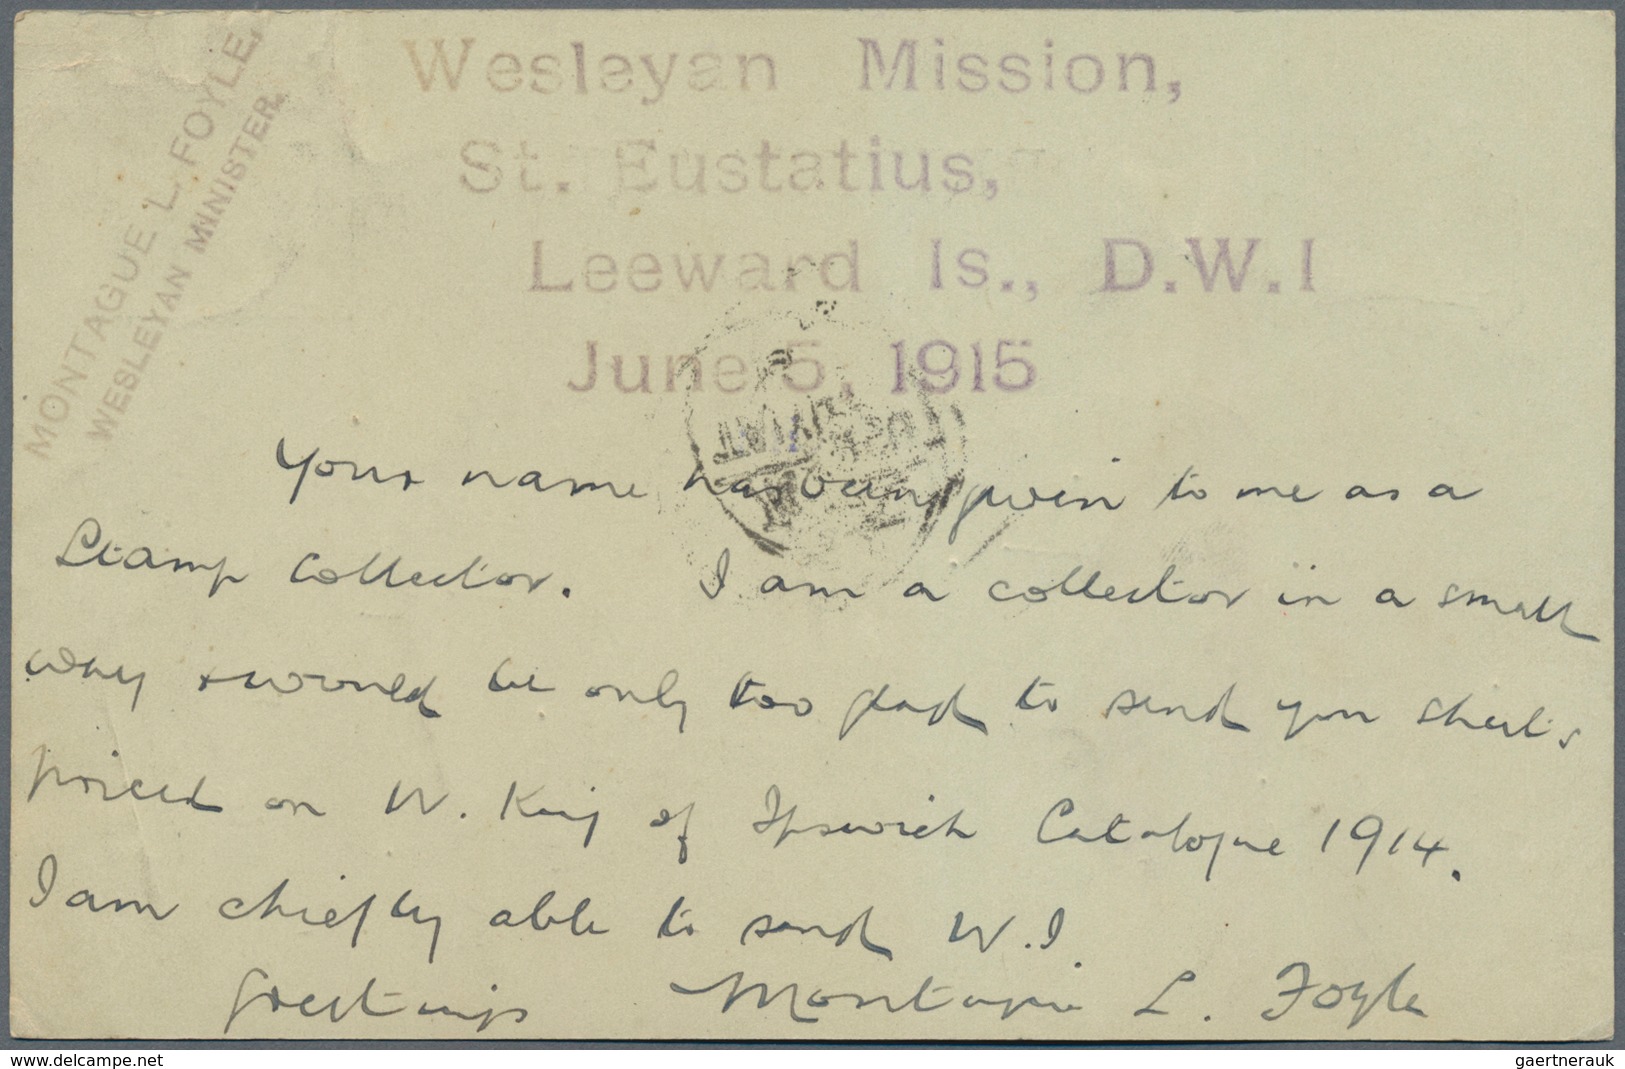 MONTAGUE L. FOYLE,
WESLEYAN MINISTER.
Wesleyan Mission,
St. Eustatius,
Leeward Is., D.W.I
June 5, 1915
Your name has been given to me as a
Stamp Collector. I am a collector in a small
way & would be only too glad to send you sheets
priced on W. King of Ipswich Catalogue 1914.
I am chiefly able to send W.I.
Greetings Montague L. Foyle
www.delcampe.net
gaertnerauk